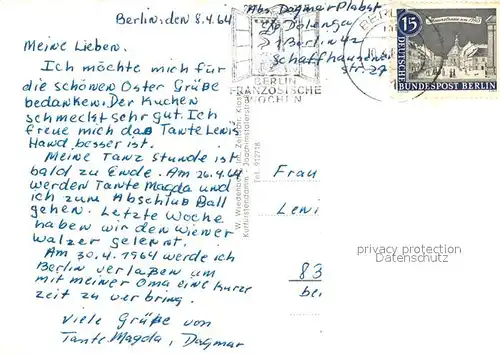 Berlin, den 8.4.64
Meine Lieben.
Ich möchte mich für
die schönen Oster Grüße
bedanken. Der Kuchen
schmeckt sehr gut. Ich
freue mich daß Tante Lenis
Hand besser ist.
Meine Tanz stunde ist
bald zu Ende. Am 26.4.64
werden Tante Magda und
ich zum Abschluß Ball
gehen. Letzte Woche
haben wir den Wiener
Walzer gelernt.
Am 30.4.1964 werde ich
Berlin verlaßen um
mit meiner Oma eine kurze
zeit zu verbring.
Viele Grüße von
Tante Magda, Dagmar
Abs. Dagmar Plabst
1 Berlin 42
Schaffhausener
str. 27
BERLIN
FRANZÖSISCHE
WOCHEN
15
DEUTSCHE
BUNDESPOST BERLIN
Kurfürstendamm - Joachimstalerstr.
Tel. 912718
Frau
Leni
83
bei
privacy protection
Datenschutz